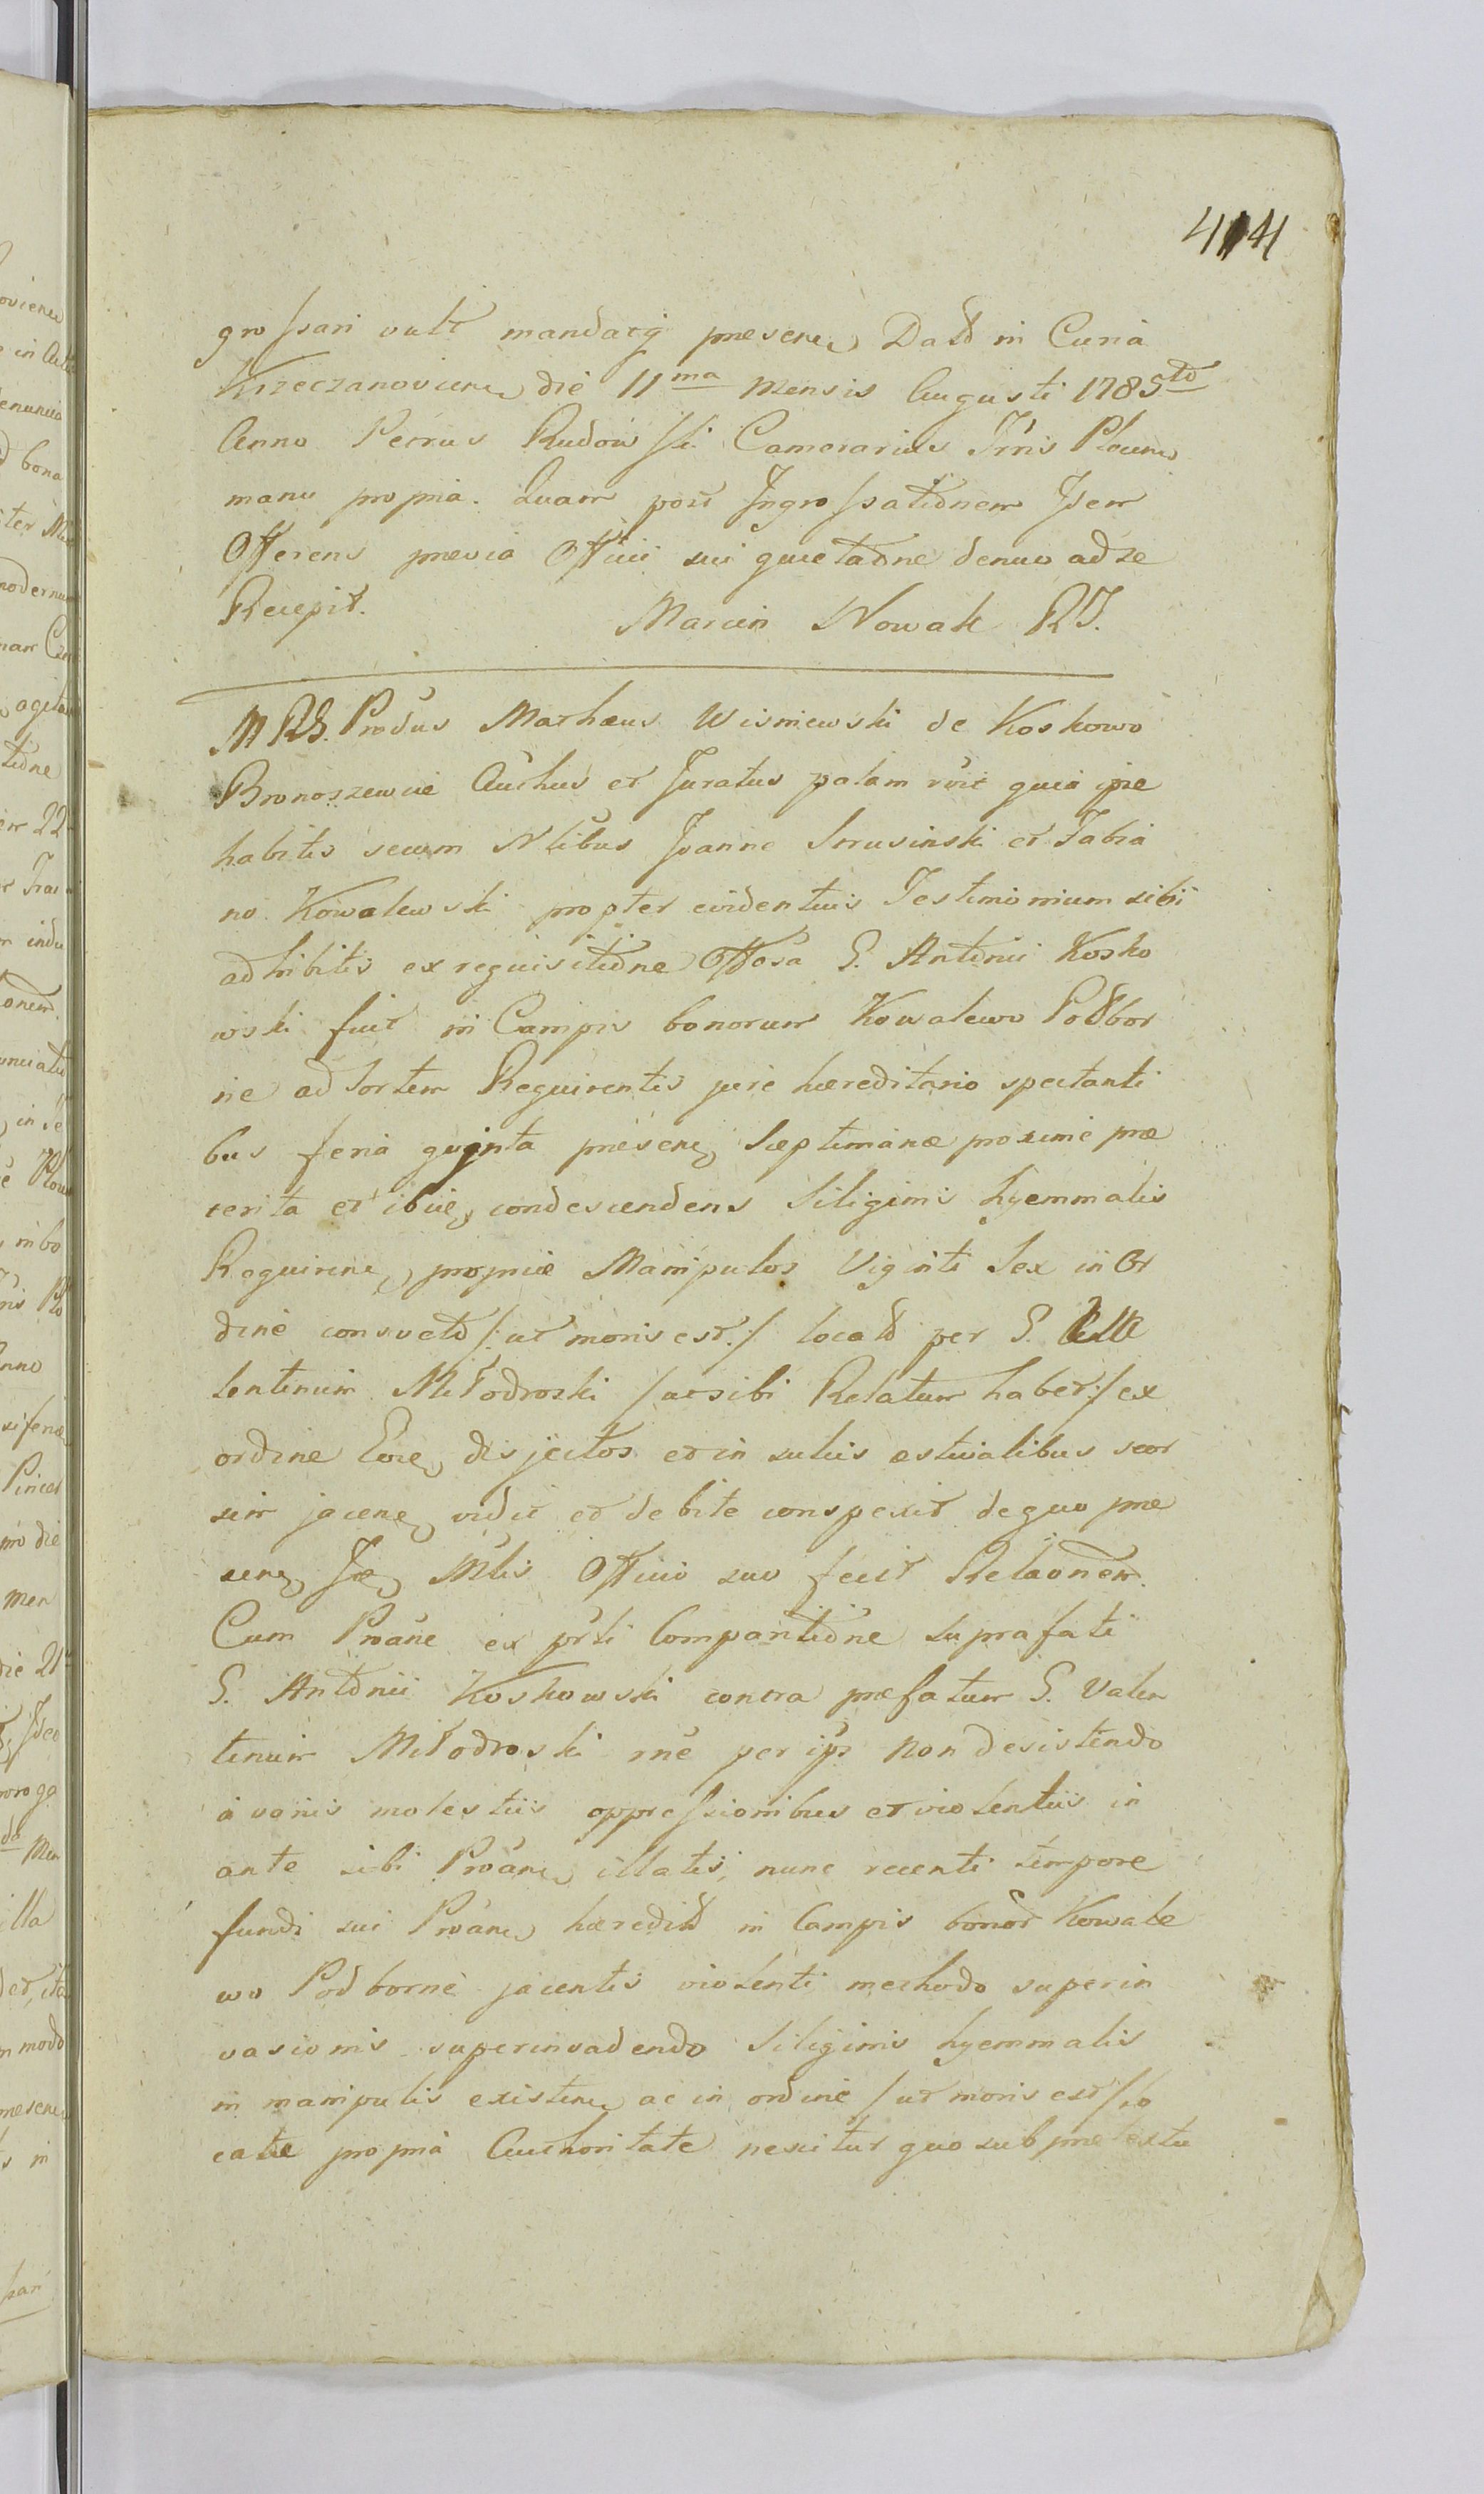 414
grossari vult mandatq presen Datt in Curia
Krzeczanovien die 11ma Mensis Augusti 1785to
Anno Petrus Rudowski Camerarius Trris Plocen
manu propria. Quam post Ingrossationem Idem
Offerens previa Officii sui quietaone denuo ad se
Recepit. Marcin Nowak RJ.
M RS. Produs Mathæus Wisniewski de Koskowo
Bronoszewice Authus et Juratus palam rūit quia ipse
habitis secum Nlibus Joanne Srusinski et Fabia
no Kowalewski propter evidentius Testimonium sibi
adhibitis ex requisitione Ottosa G. Antonii Kosko
wski fuit in Campis bonorum Kowalewo Podbor
ne ad Sortem Requirentis jure hæreditario spectanti
bus feria quinta presen Septimanæ proxime præ
terita et ibiē condescendens Siliginis hyemmalis
Requiren, propriæ Manipulos Viginti Sex in Or
dine consueto /: ut moris est :/ locatt per G. Va
lentinum Młodroski / ac sibi Relatum habet :/ ex
ordine disjectos et in sulcis æstivalibus seor
sim jacen vidit et debite conspexit de quo præ
sen Mtis Officio suo fecit Relaonem.
Cum Proāne ex prti Comparitione suprafati
G. Antonii Koskowski contra præfatum G. Valen
tinum Młodroski rne per ips non desistendo
a variis molestiis oppressionibus et violentiis in
ante sibi Proān illatis, nunc recenti tempore
fundi sui Proān hæredit in Campis bonor Kowale
wo Podborne jacentis violenti methodo superin
vasionis superinvadendo Siliginis hyemmalis
in manipulis existen ac in ordine / ut moris est / lo
catæ propria Authoritate nescitur quo sub prætextu